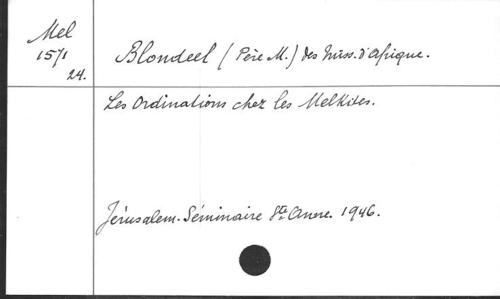 Mel
1571
24.
Blondeel (Père M.) des Miss. d'Afrique.
Les Ordinations chez les Melkites.
Jérusalem. Séminaire Ste Anne. 1946.